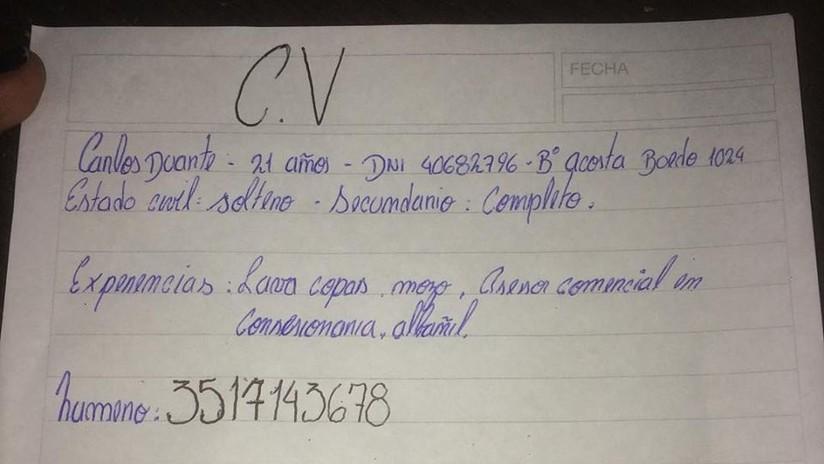 C.V
FECHA
Carlos Duarte - 21 años - DNI 40682796 - B° acosta Boedo 1024
Estado civil: soltero - Secundario: Completo.
Experiencias: Lava copas, mozo, Asesor comercial en
Consesionaria, albañil.
humero: 3517143678